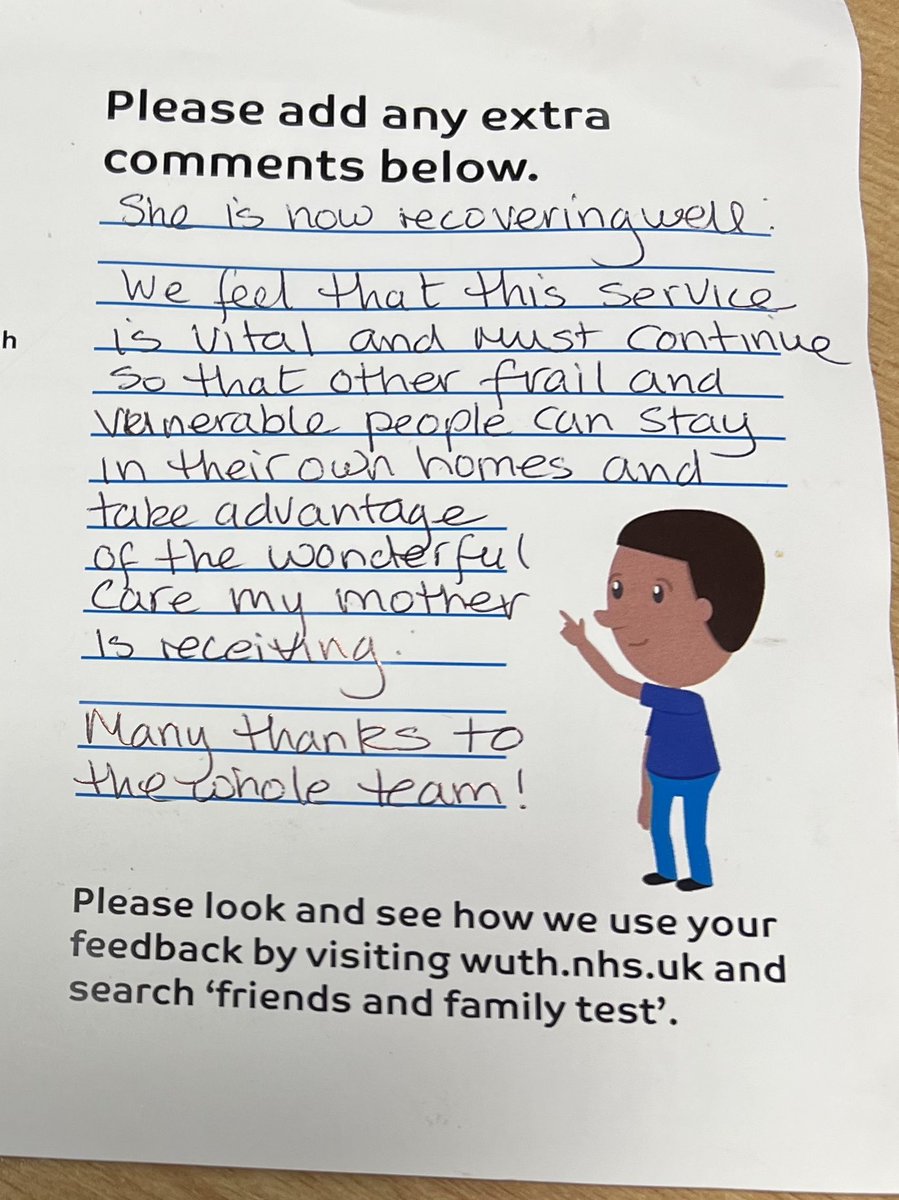 Please add any extra
comments below.
She is now recovering well.
We feel that this service
h
is vital and must continue
so that other frail and
vulnerable people can stay
in their own homes and
take advantage
of the wonderful
care my mother
is receiving.
Many thanks to
the whole team!
Please look and see how we use your
feedback by visiting wuth.nhs.uk and
search ‘friends and family test’.